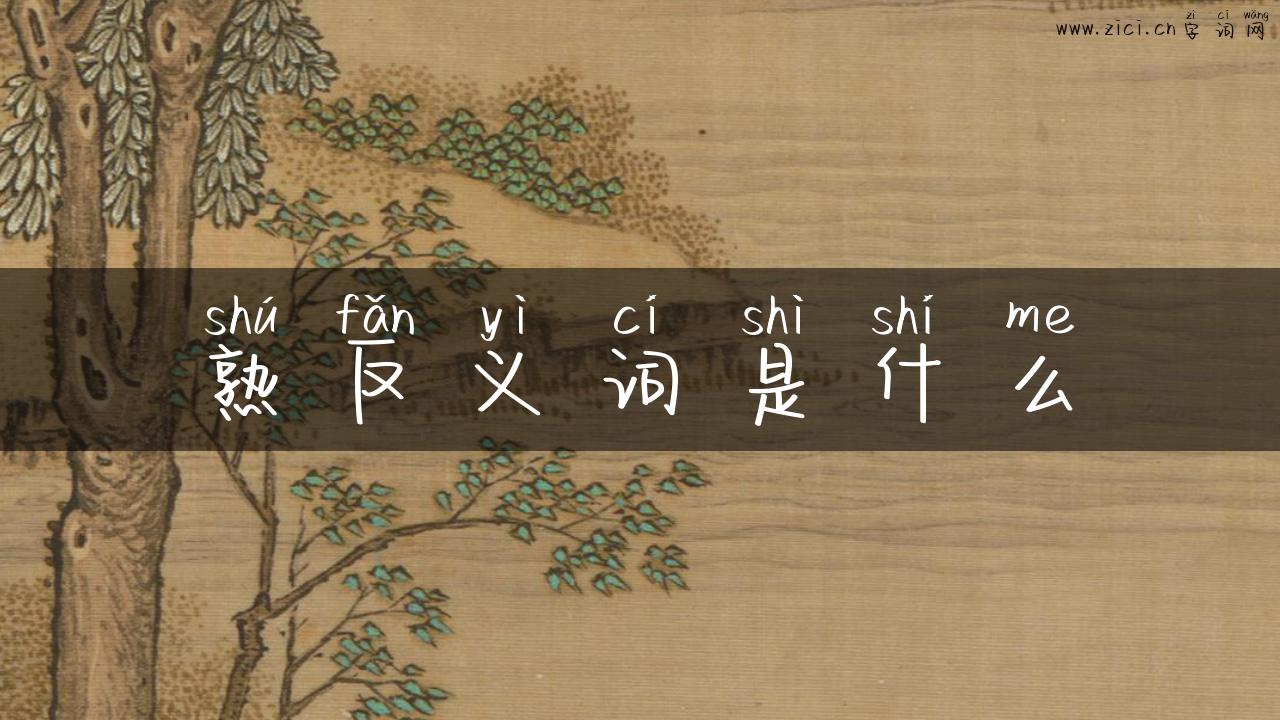 zì cí wǎng
www.zici.cn 字词网
shú fǎn yì cí shì shí me
熟反义词是什么